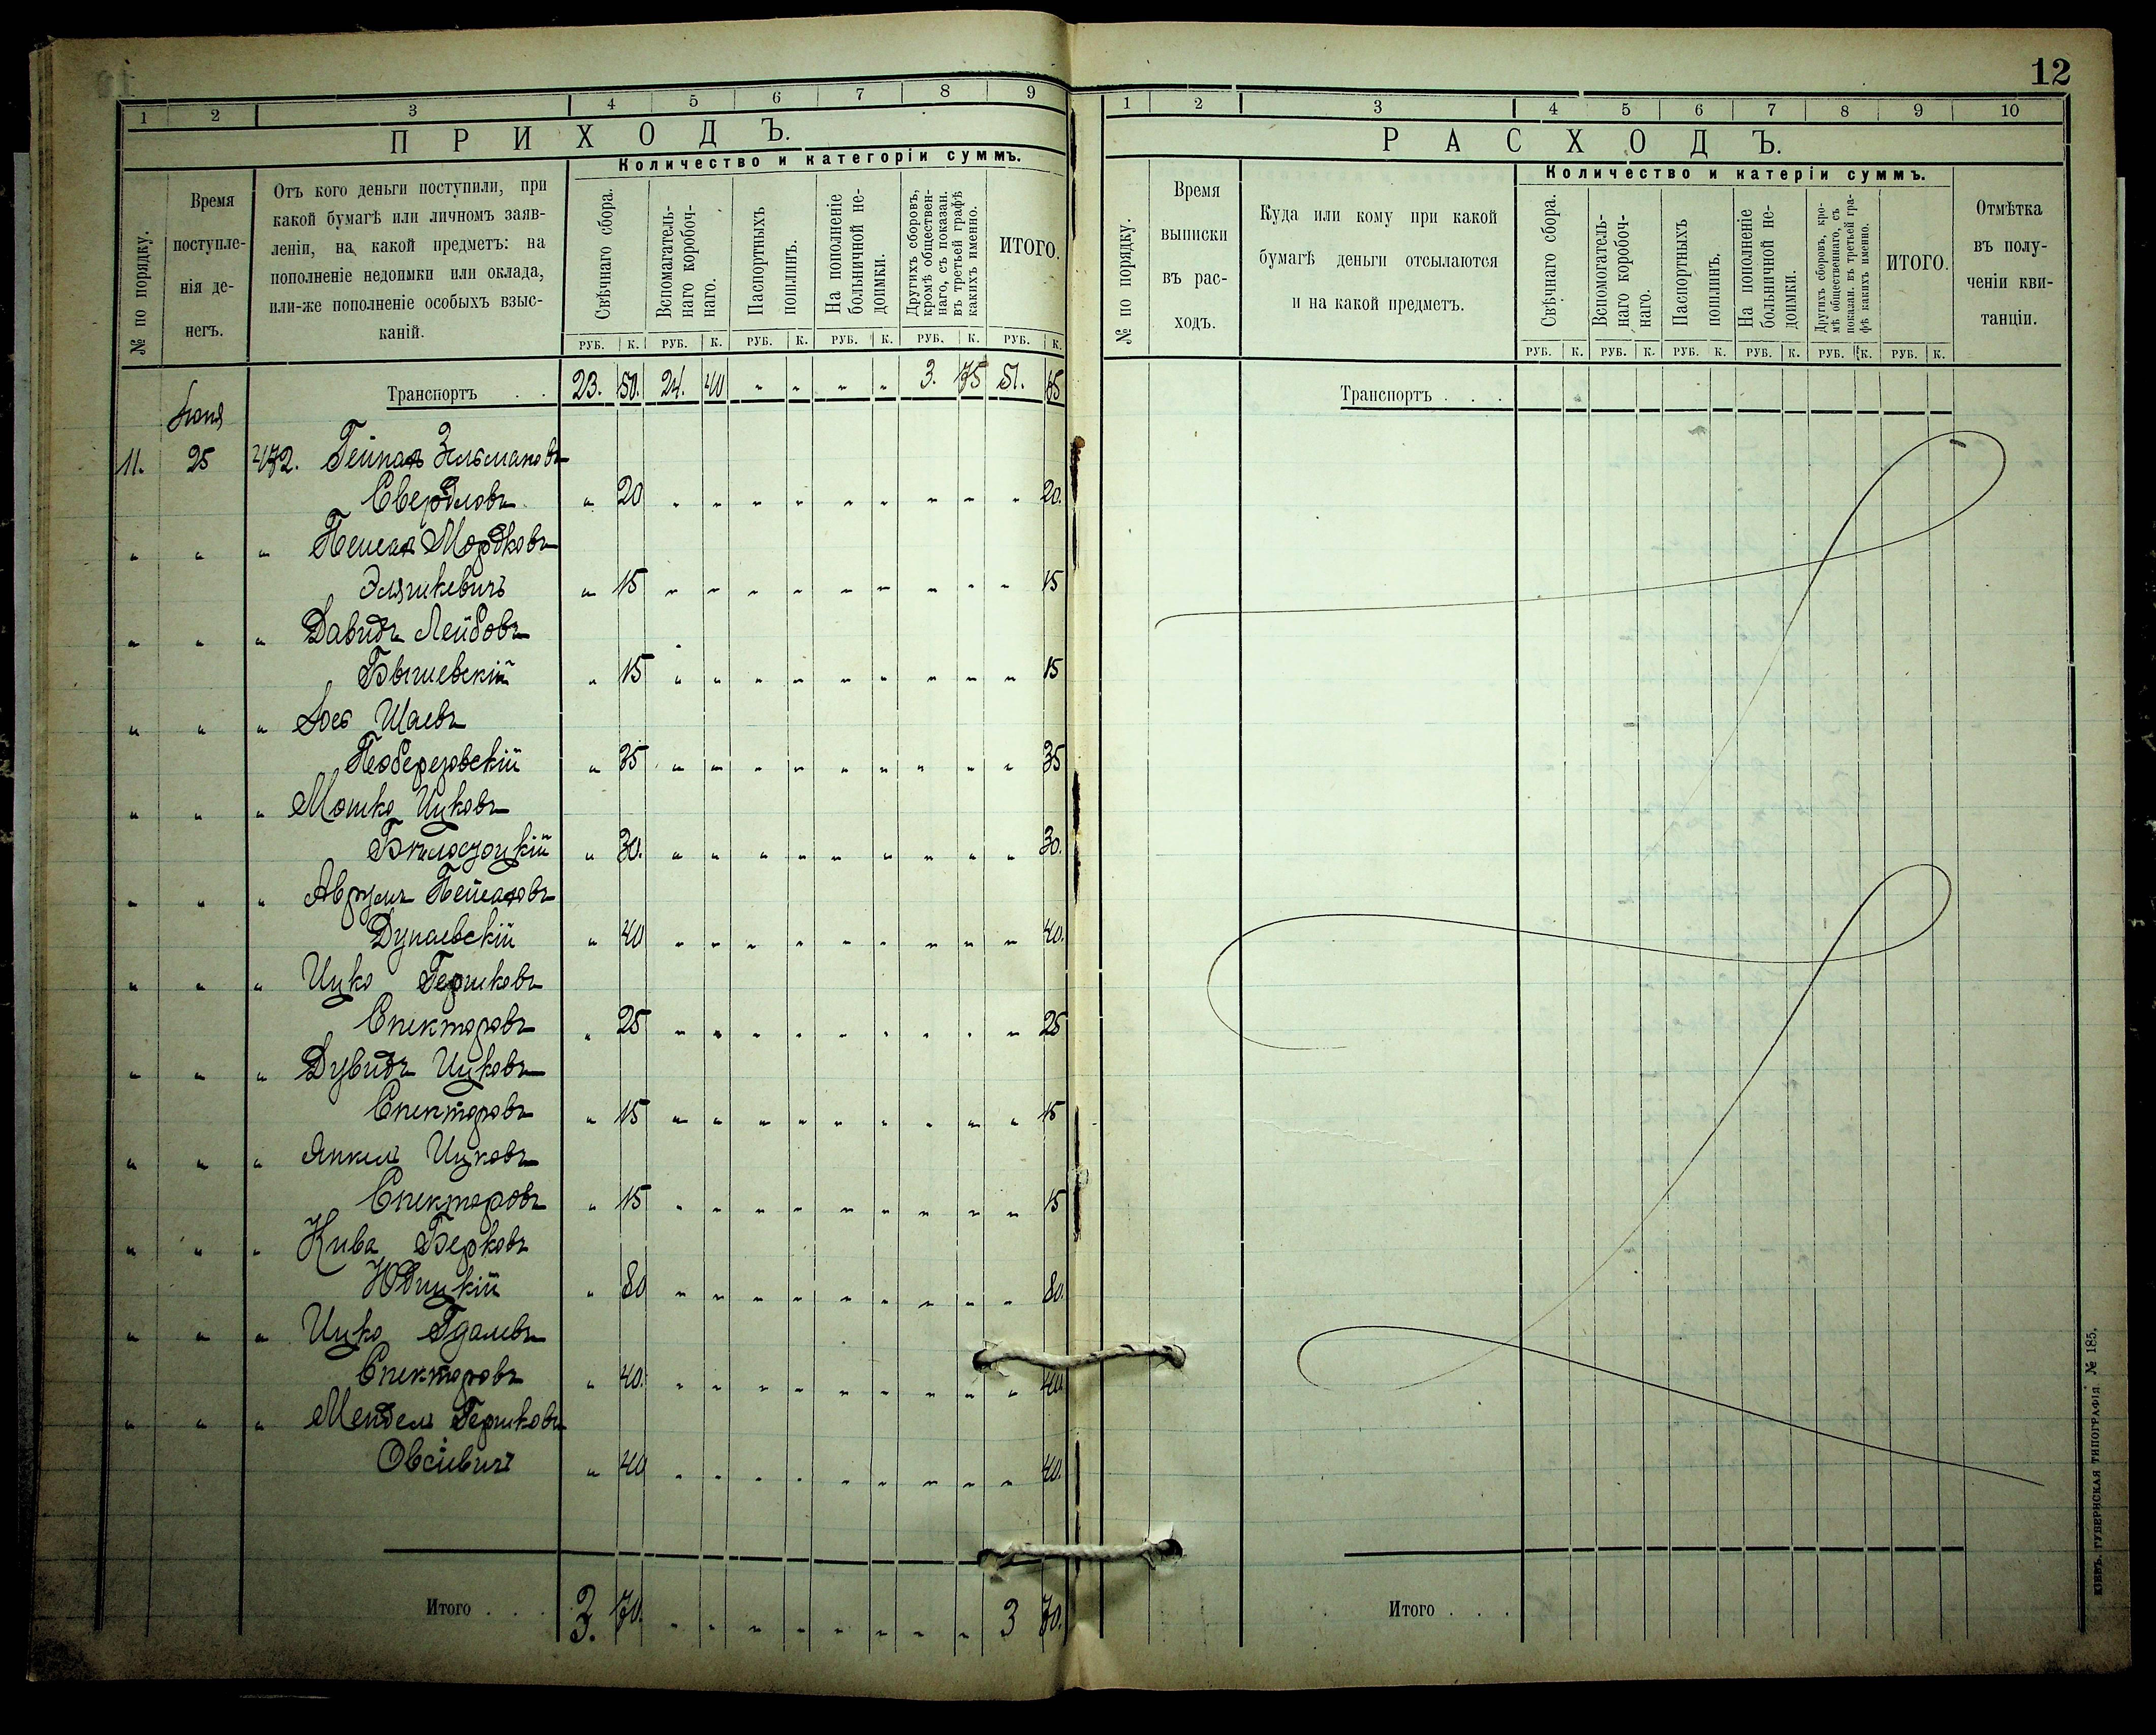 1 2 3 4 5 6 7 8 9
ПРИХОДЪ.
№ по порядку.
Время
поступле-
нія де-
негъ.
Отъ кого деньги поступили, при
какой бумагѣ или личномъ заяв-
леніи, на какой предметъ: на
пополненіе недоимки или оклада,
или-же пополненіе особыхъ взыс-
каній.
Количество и категоріи суммъ.
Свѣчнаго сбора.
Вспомагатель-
наго коробоч-
наго.
Паспортныхъ
пошлинъ.
На пополненіе
больничной не-
доимки.
Другихъ сборовъ,
кромѣ обществен-
наго, съ показан.
въ третьей графѣ
какихъ именно.
ИТОГО.
РУБ. К. РУБ. К. РУБ. К. РУБ. К. РУБ. К. РУБ. К.
Транспортъ . . 23. 50. 24. 40 " " " " 3. 75 51. 65
Іюня
11. 25 472. Зельмановъ
Свердловъ " 20 " " " " " " " " " 20.
" " " Мордковъ
Эляшкевичъ " 15 " " " " " " " " " 15
" " " Давидъ Лейбовъ
Бышевскій " 15 " " " " " " " " " 15
" " " Іосъ Шаевъ
Поберезовскій " 35 " " " " " " " " " 35
" " " Мошко Ицковъ
Бѣлоцкій " 30. " " " " " " " " " 30.
" " " Аврумъ Пейсаховъ
Дунаевскій " 40 " " " " " " " " " 40.
" " " Ицко Гершковъ
Спекторовъ " 25 " " " " " " " " " 25
" " " Дувидъ Ицковъ
Спекторовъ " 15 " " " " " " " " " 15
" " " Янкель Ицковъ
Спекторовъ " 15 " " " " " " " " " 15
" " " Кива Берковъ
Юдицкій " 80 " " " " " " " " " 80.
" " " Ицко Гдалевъ
Спекторовъ " 40. " " " " " " " " " 40
" " " Мендель Гершковъ
Овсіевичъ " 40 " " " " " " " " " 40.
Итого . . . 3. 70. " " " " " " " " 3 70.
12
1 2 3 4 5 6 7 8 9 10
РАСХОДЪ.
№ по порядку.
Время
выписки
въ рас-
ходъ.
Куда или кому при какой
бумагѣ деньги отсылаются
и на какой предметъ.
Количество и катеріи суммъ.
Свѣчнаго сбора.
Вспомогатель-
наго коробоч-
наго.
Паспортныхъ
пошлинъ.
На пополненіе
больничной не-
доимки.
Другихъ сборовъ, кро-
мѣ общественнаго, съ
показан. въ третьей гра-
фѣ какихъ именно.
ИТОГО.
Отмѣтка
въ полу-
ченіи кви-
танціи.
РУБ. К. РУБ. К. РУБ. К. РУБ. К. РУБ. К. РУБ. К.
Транспортъ . . .
Итого . . .
КІЕВЪ. ГУБЕРНСКАЯ ТИПОГРАФІЯ № 185.